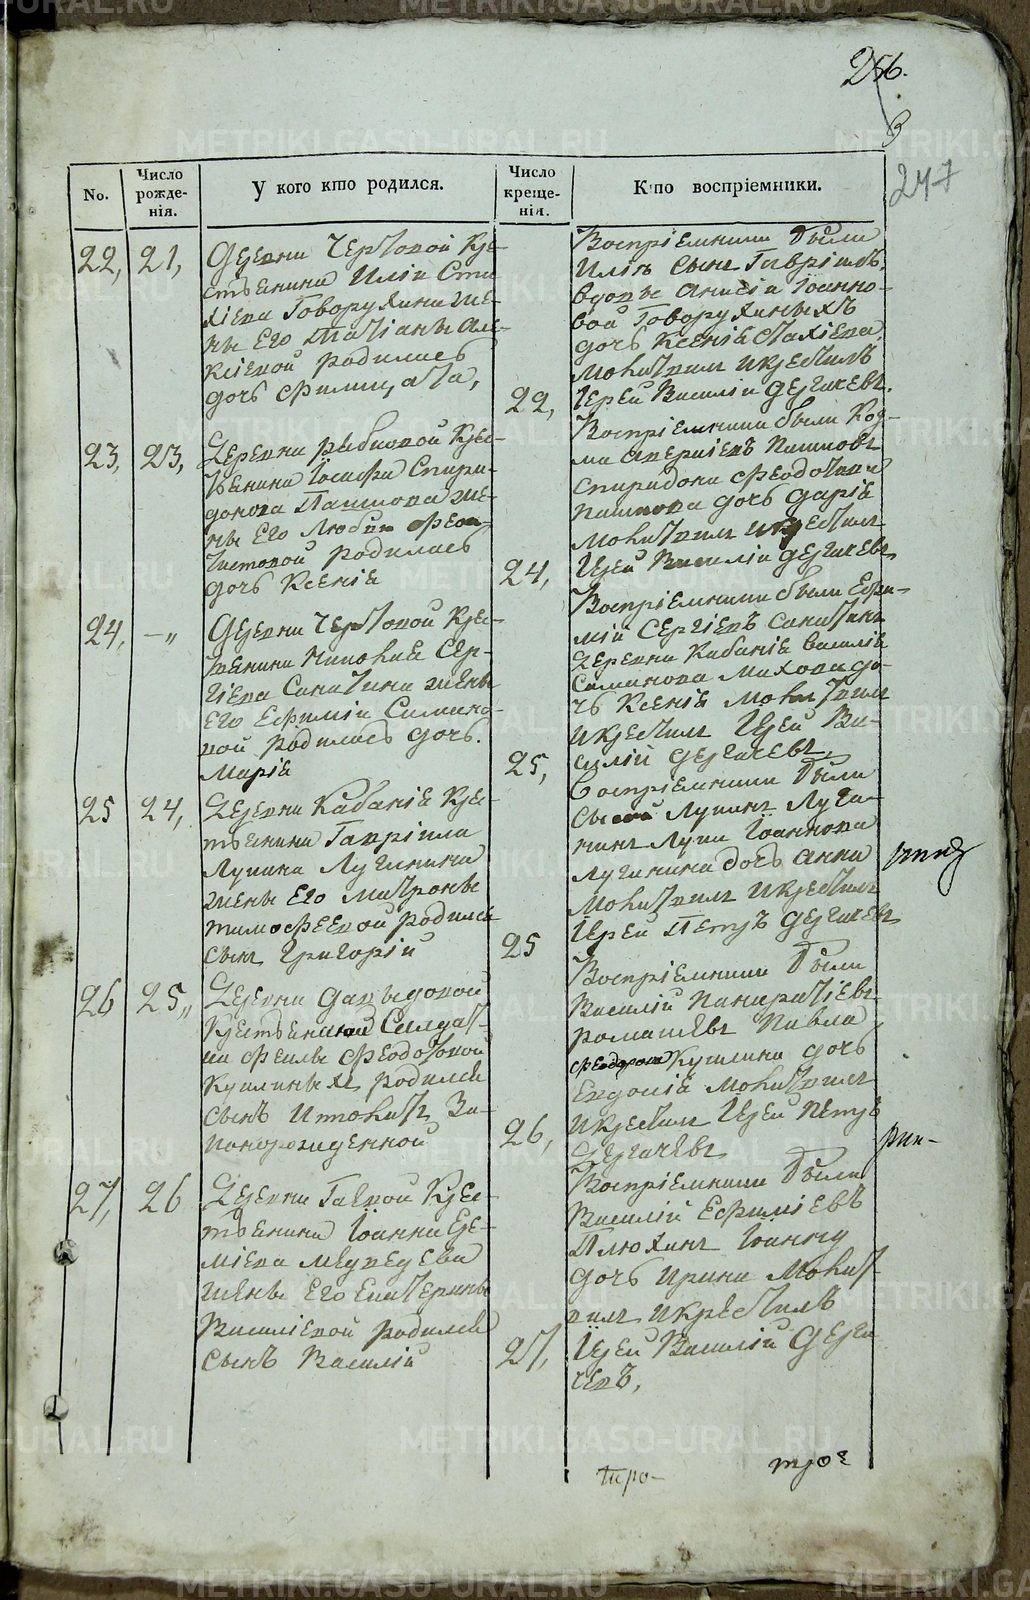 256.
3
247
No.
Число рожде-нія.
У кого кто родился.
Число креще-нія.
Кто воспріемники.
22, 21,
Деревни Чертовой Кре-
стьянина Иліи Ста
хіева Говорухина же-
ны Его Татіаны Але-
ксіевой родилась
дочь Филицата,
Воспріемники были
Илія сынъ Гавріилъ,
вдовы Анисіи Іоанно-
вой Говорухиныхъ
дочь Ксенія Стахіева
Молитвилъ и крестилъ
22, Іерей Василій Дергачевъ.
23, 23,
Деревни рыбновой Крес-
тьянина Іосифа Спири-
донова Пашкова же-
ны Его Любви Феок-
тистовой родилась
дочь Ксенія
Воспріемники были Коз-
ма Аверкіевъ Пашковъ
Спиридона Феодотова
Пашкова дочь Дарія
молитвилъ и крестилъ
24, Іерей Василій Дергачевъ
24, —„
Деревни Чертовой Крес-
тьянина Сер-
гіева Санатина жены
Его Ефиміи Симано-
вой родилась дочь.
Марія
Воспріемники были Ефи-
мій Сергіевъ Санатинъ
Деревни Кабанія Василія
Симанова Махова до-
чь Ксенія Молитвилъ
и крестилъ Іерей Ва-
25, силій Дергачевъ,
25 24,
Деревни Кабанія Крес-
тьянина Гавріила
Лупина Лугинина
жены Его Матроны
тимофеевой родился
сынъ Григорій
Воспріемники были
Лупинъ Луги-
нинъ Лупа Іоаннова
Лугинина дочь Анна
молитвилъ и крестилъ
25 Іерей Петръ Дергачевъ
26 25„
Деревни Давыдовой
Крестьянкой Салдат-
ки Феклы Феодотовой
Куклиныхъ родился
сынъ Ипполитъ За-
конорожденной
Воспріемники были
Василій Панкратіевъ
ромашевъ Павла
Феодорова Куклина дочь
Евдокія Молитвилъ
26, и крестилъ Іерей Петръ
Дергачевъ
27, 26
Деревни Гаевой Крес-
тьянина Іоанна Ере-
міева Медведева
жены Его Екатерины
Василіевой родился
сынъ Василій
Воспріемники были
Василій Ефиміевъ
Плюхинъ Іоанну
дочь Ирина Молит-
вилъ и крестилъ
27, Іерей Василій Дерга
чевъ,
Про-
трое
METRIKI.GASO-URAL.RU